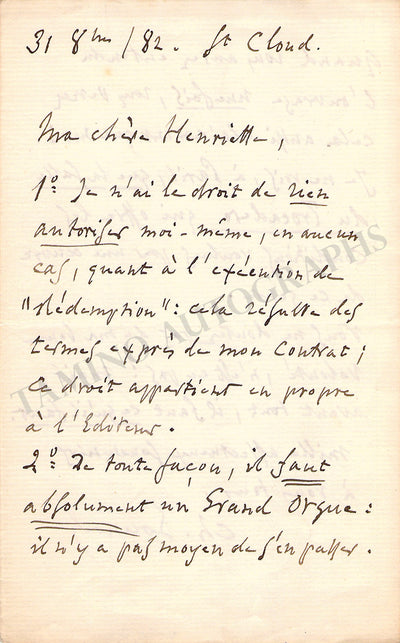 31 8bre/82. St Cloud.
Ma chère Henriette,
1º. Je n'ai le droit de rien
autoriser moi-même, en aucun
cas, quant à l'exécution de
"Rédemption": cela résulte des
termes exprès de mon Contrat;
ce droit appartient en propre
à l'Editeur.
2º. De toute façon, il faut
absolument un Grand Orgue:
il n'y a pas moyen de s'en passer.
TAMINO AUTOGRAPHS